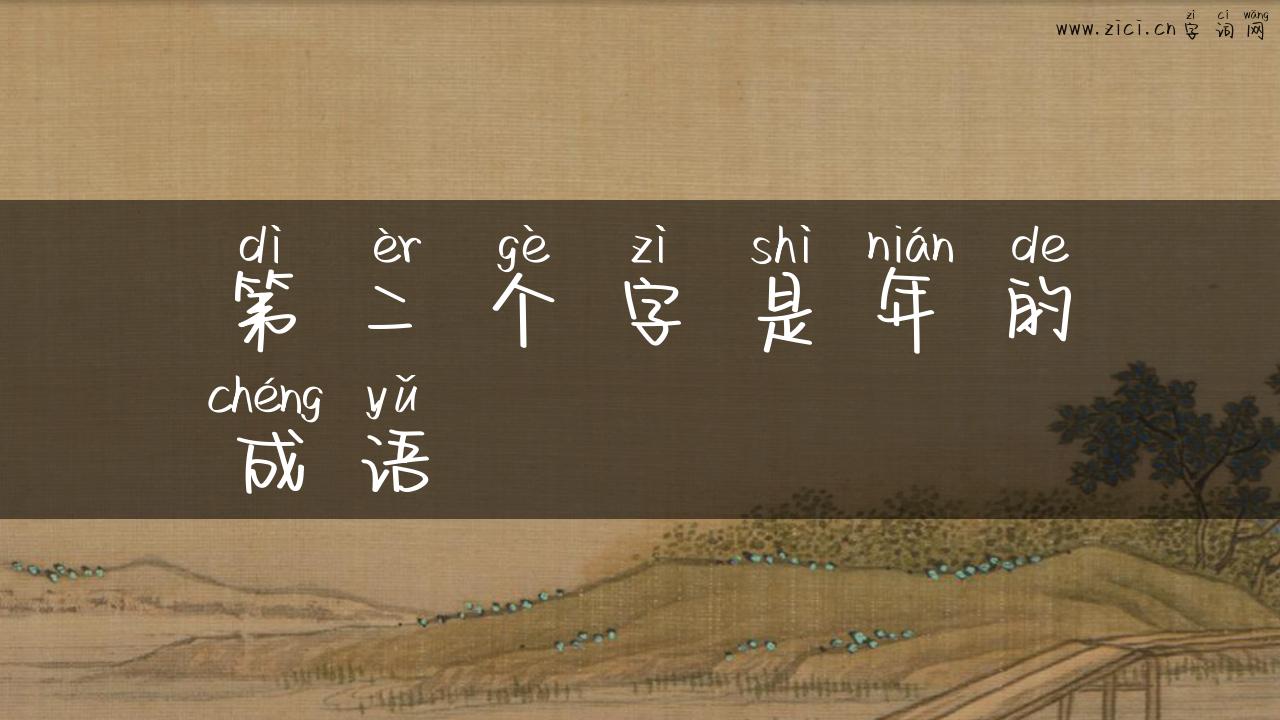 zì cí wǎng
www.zici.cn字词网
dì èr gè zì shì nián de
第二个字是年的
chéng yǔ
成语